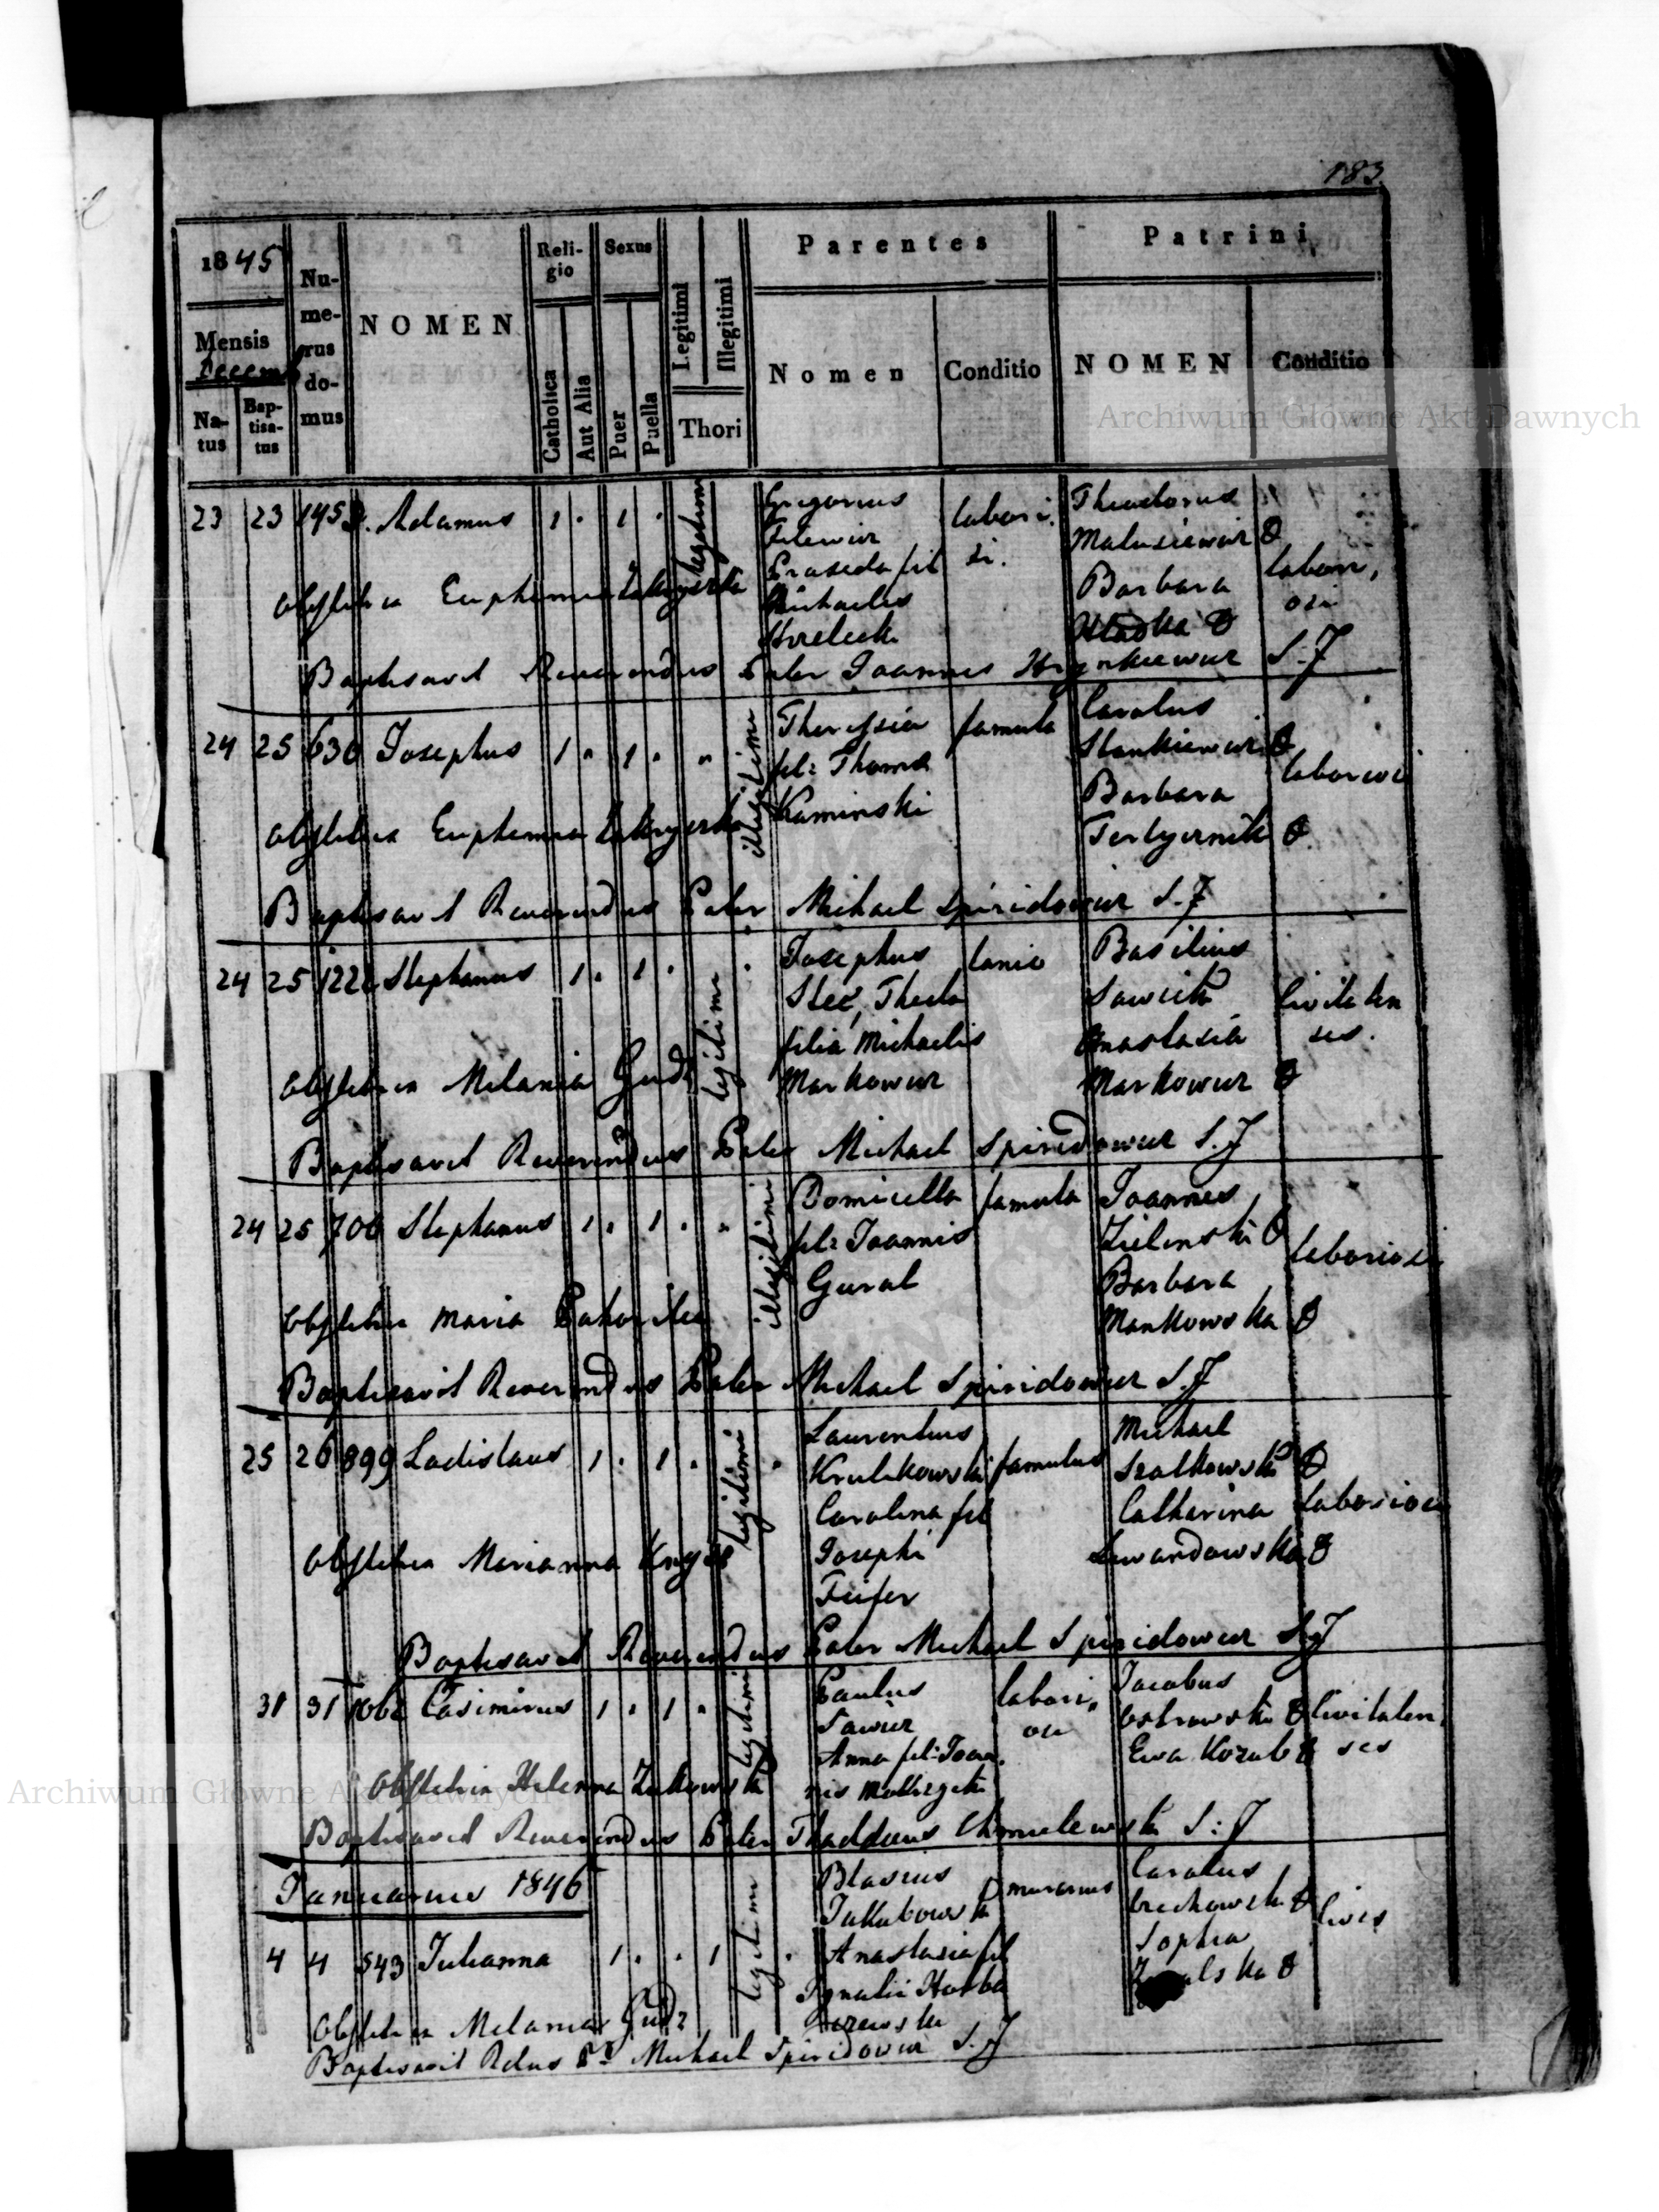 183
1845
Mensis
Decemb
Na-
tus
Bap-
tisa-
tus
Nu-
me-
rus
do-
mus
NOMEN
Reli-
gio
Catholica
Aut Alia
Sexus
Puer
Puella
Legitimi
Illegitimi
Thori
Parentes
Nomen
Conditio
Patrini
NOMEN
Conditio
Archiwum Główne Akt Dawnych
23 23 Adamus 1 . 1 . legitimi
Gregorius
Praxeda fil
Michaelis
labori.
si.
Theodorus
Barbara
labori,
osi
Obstetrix Euphemia
Baptisavit Reverendus Pater Joannes Hrynkiewicz S.J
24 25 630 Josephus 1 " 1 . " illegitimi
Theressia
fil: Thoma
Kaminski
famula
Carolus
Stankiewicz
Barbara
laboriosi
Obstetrix Euphemia
Baptisavit Reverendus Pater Michael Spiridowicz S.J
24 25 Stephanus 1 . 1 . legitimi .
Josephus
Stec, Thecla
filia Michaelis
Markowicz
lanio
Basilius
Sawicki
Anastasia
Markowicz
Civitaten
ses.
Obstetrix Melania Gudz
Baptisavit Reverendus Pater Michael Spiridowicz S.J
24 25 700 Stephanus 1 . 1 . " illegitimi
Domicella
fil: Joannis
Gural
famula
Joannes
Zielinski
Barbara
Mankowska
laboriosi
Obstetrix Maria
Baptisavit Reverendus Pater Michael Spiridowicz S.J
25 26 899 Ladislaus 1 . 1 . legitimi "
Laurentius
Krulikowski
Carolina fil
Josephi
Feifer
famulus
Michael
Szalkowski
Catharina
Lewandowska
laboriosi
Obstetrix Marianna
Baptisavit Reverendus Pater Michael Spiridowicz S.J
31 31 1062 Casimirus 1 . 1 " legitimi
Paulus
Sawicz
Anna fil: Joan.
nis
labori,
osi
Jacobus
Ostrowski
Ewa Kozub
Civitalen,
ses
Obstetrix Helenna Zulkowska
Baptisavit Reverendus Pater Thaddeus Chmielewski S:J
Archiwum Główne Akt Dawnych
Januarius 1846
4 4 543 Julianna 1 . . 1 legitimi .
Blasius
Jakubowski
Anastasia fil
Ignatii
murarius
Carolus
Sophia
Cives
Obstetrix Melania Gudz
Baptisavit Rdus Pr Michael Spiridowicz S.J